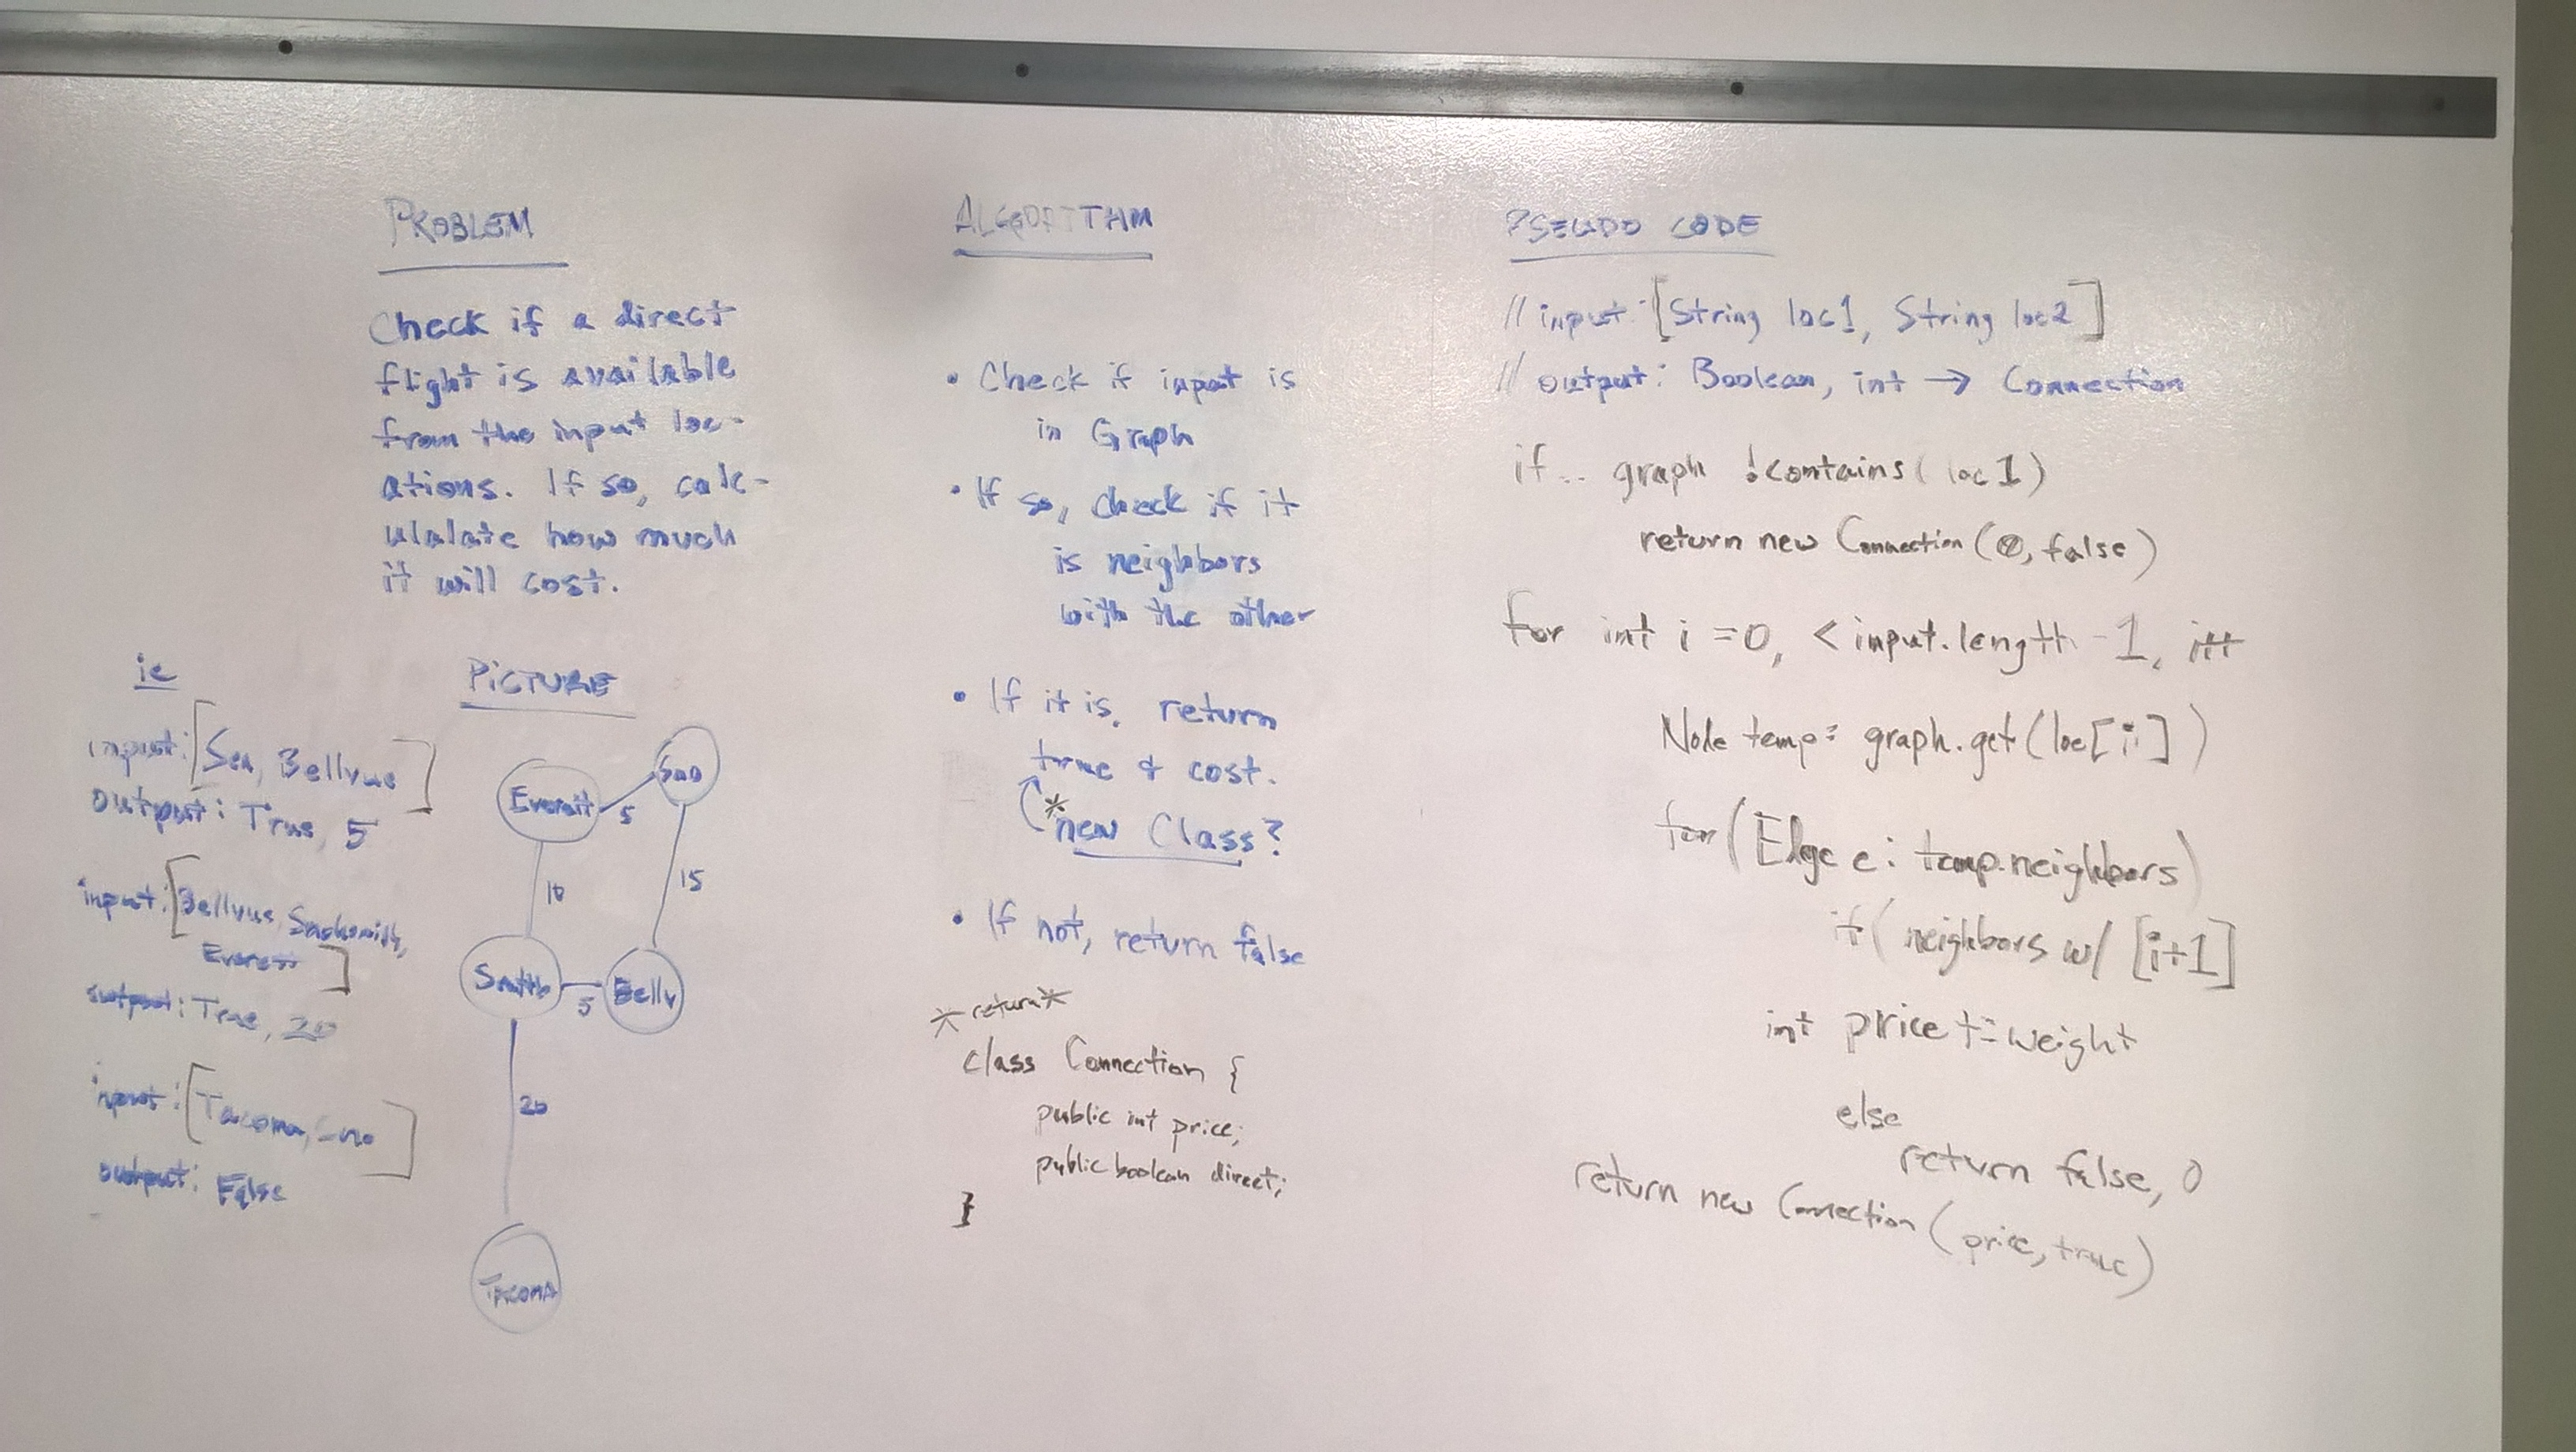 PROBLEM
Check if a direct
flight is available
from the input loc-
ations. If so, calc-
ulalate how much
it will cost.
ie
input: [Sea, Bellvue]
output: True, 5
input: [Bellvue, Snohomish,
Everett]
output: True, 20
input: [Tacoma, Sno]
output: False
PICTURE
Sno
Everett
5
10
15
Seattle
5
Bellv
20
TACOMA
ALGORITHM
• Check if input is
in Graph
• If so, check if it
is neighbors
with the other
• If it is, return
true & cost.
*new Class?
• If not, return false
*return*
class Connection {
public int price;
public boolean direct;
}
PSEUDO CODE
// input: [String loc1, String loc2]
// output: Boolean, int → Connection
if.. graph !contains(loc1)
return new Connection(0, false)
for int i =0, < input.length -1, i++
Node temp = graph.get(loc[i])
for(Edge e: temp.neighbors)
if( neighbors w/ [i+1]
int price += weight
else
return false, 0
return new Connection(price, true)